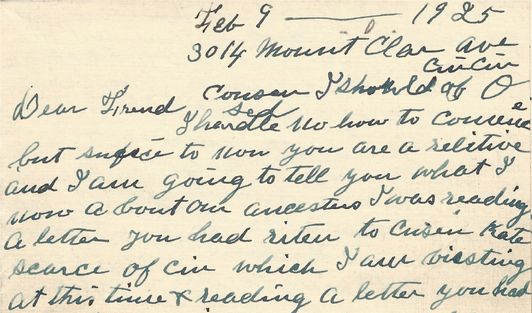 Feb 9 — 1925
3014 Mount Clar ave
Cincin
Dear Frend Consen I should of O
sed
I hardle no how to comence
but sufice to non you are a relitive
and I am going to tell you what I
now a bout our ancestors I was reading
a letter you had riten to Cusin Kate
Scarce of Cin which I am vissting
at this time & reading a letter you had